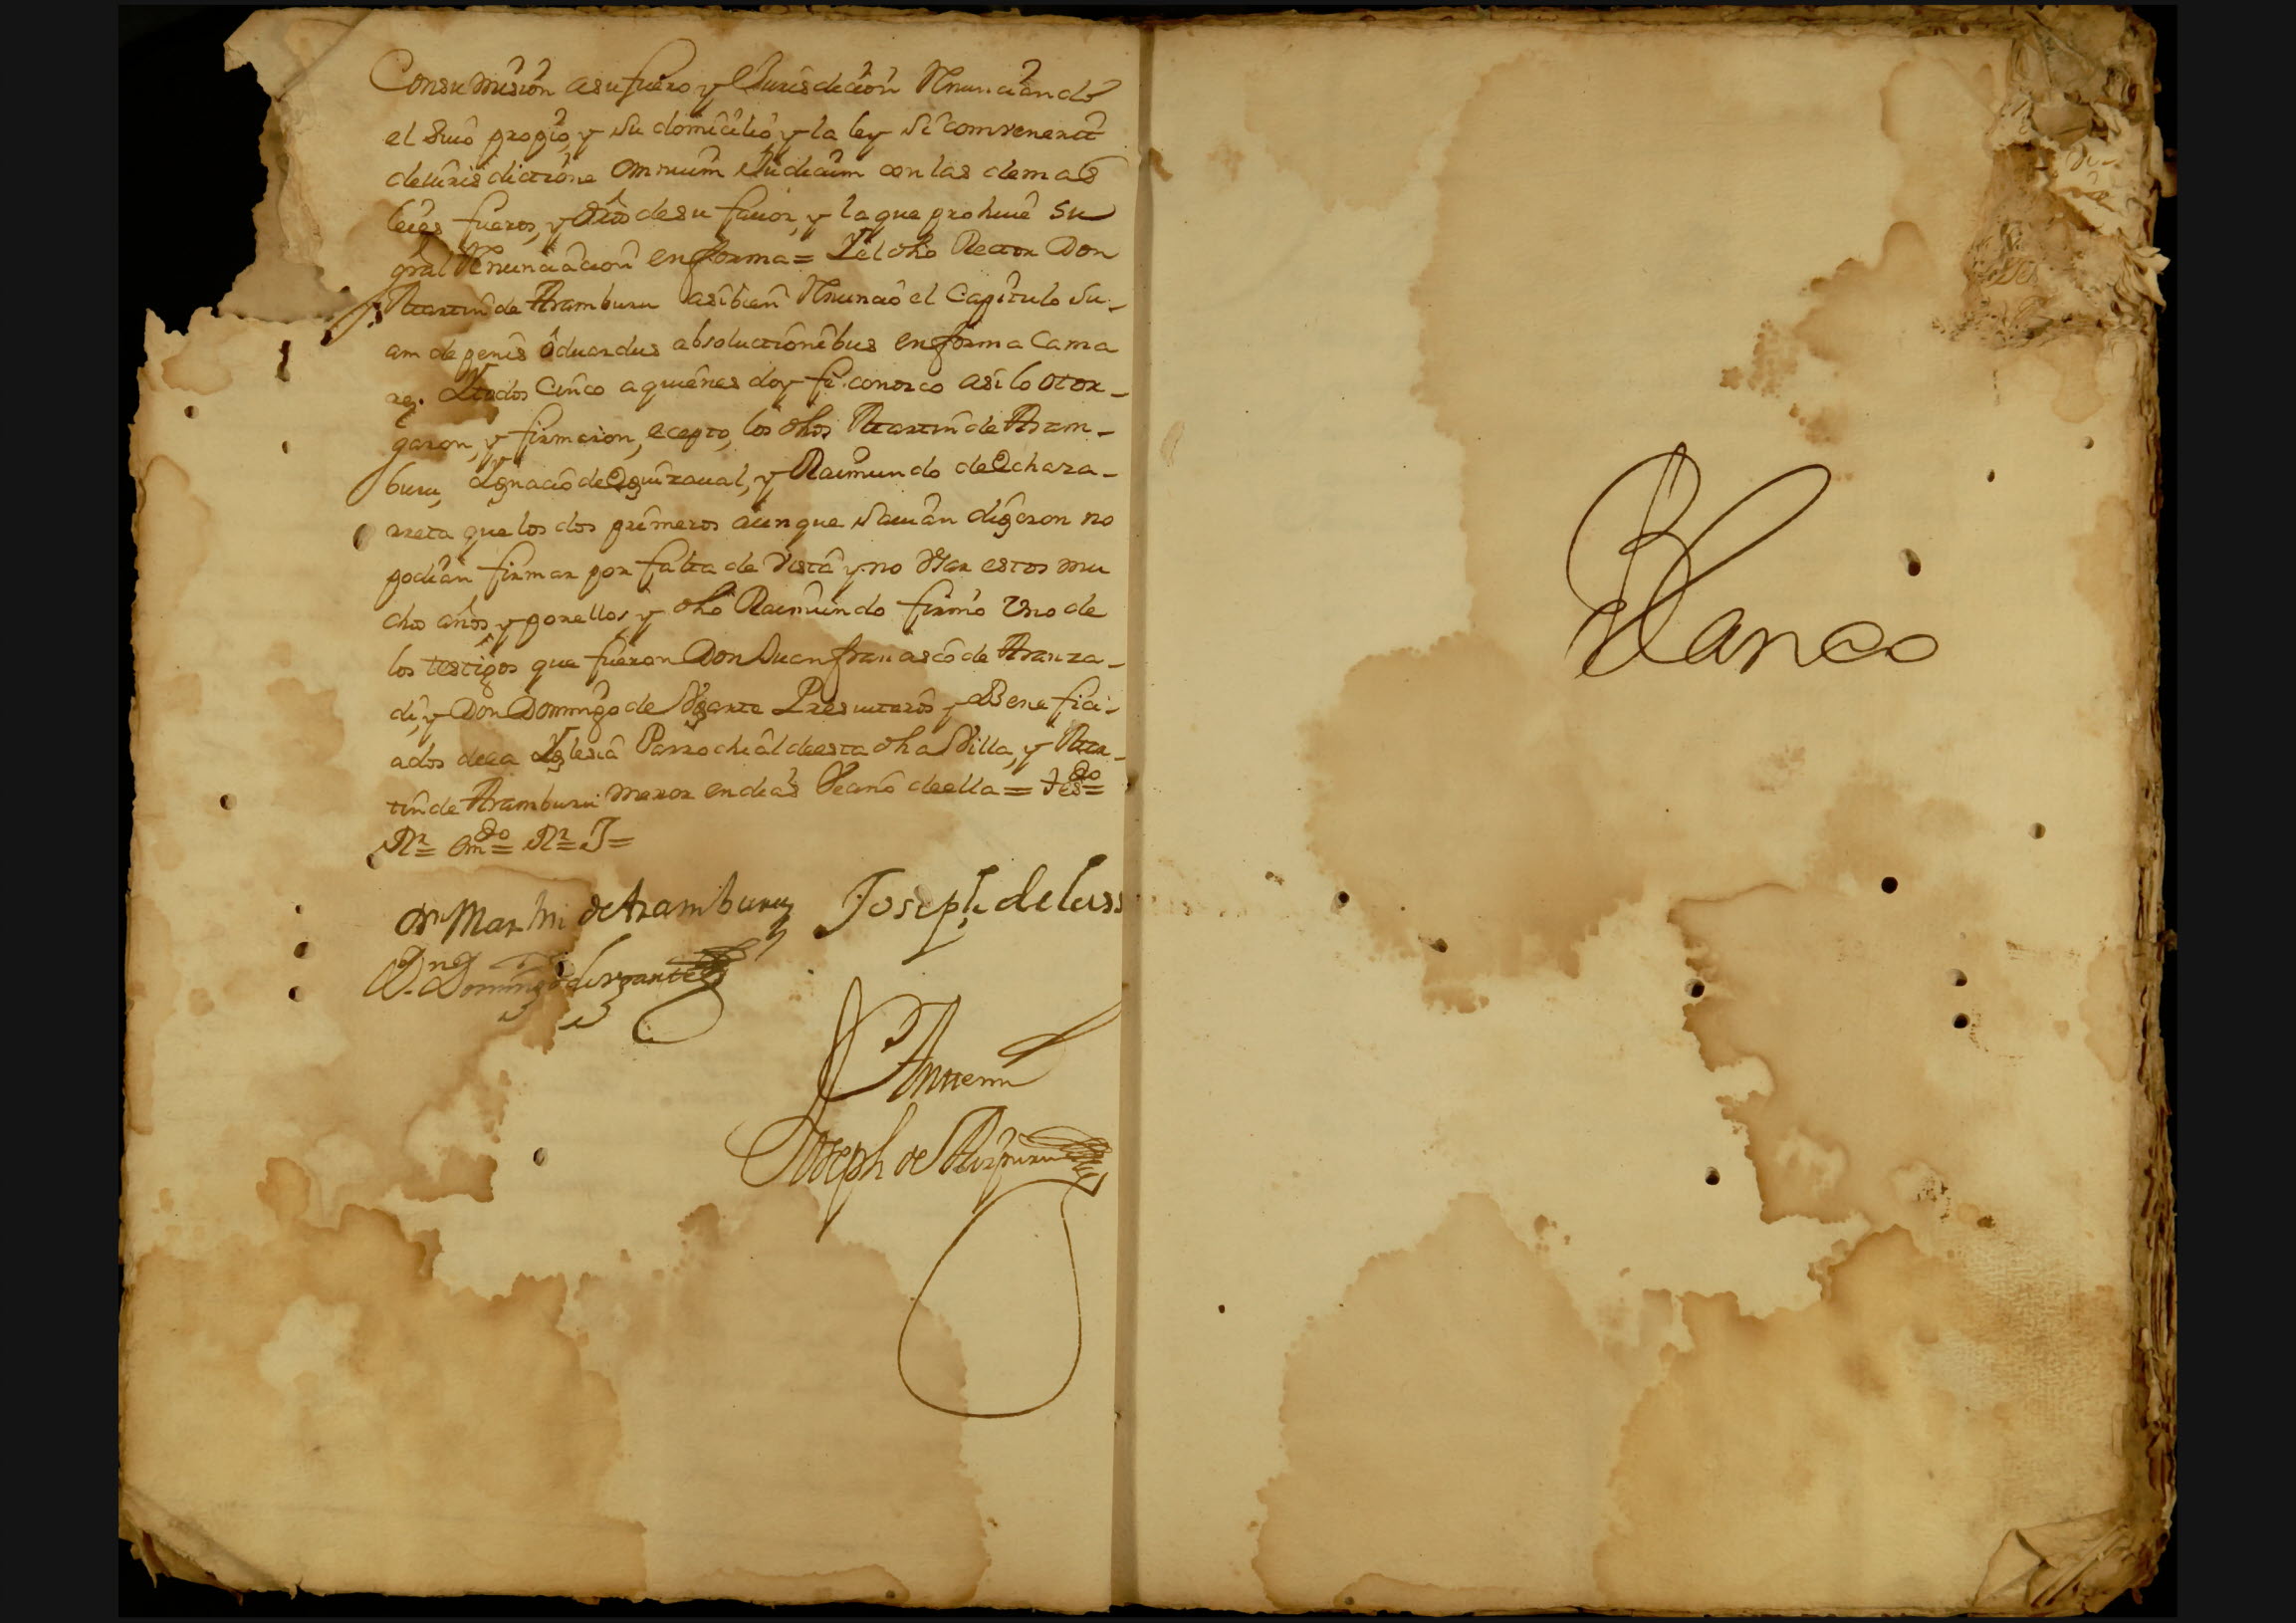 Consumision asufuero y Jurisdicion Rnunciando
el Suio propio, y Su domicilio, y la ley Si combenerit
deJurisdictione omnium Judicum con las demas
leies fueros, y dros desu fauor, y la que prohiue su
gral Rnunciacion enforma = Yel dho Rector Don
Martin de Aramburu asibien Rnuncio el Capitulo Su-
am de penis Oduardus absolutionibus enforma Cama
re. Ytodos Cinco aquienes doy fe conozco asi lo otor-
garon, y firmaron, ecepto, los dhos Martin de Aram-
buru, Ygnacio de Eguizaual, y Raimundo de Echaza-
rreta que los dos primeros aunque Sauian digeron no
podian firmar por falta de vista y no Usar estos mu
chos años y porellos, y dho Raimundo firmo Uno de
los testigos que fueron Don Juan francisco de Aranza-
di, y Don Domingo de Ugarte Presuiteros y Benefici-
ados dela Yglesia Parrochial deesta dha Villa, y Mar-
tin de Aramburu menor endias Vecino deella = tesdo=
Rr= emdo= Rr= J=
Dn Martin de Aramburu Joseph de
Dn Domingo de Vgarte
Antemi
Joseph de Aizpuru
Blanco